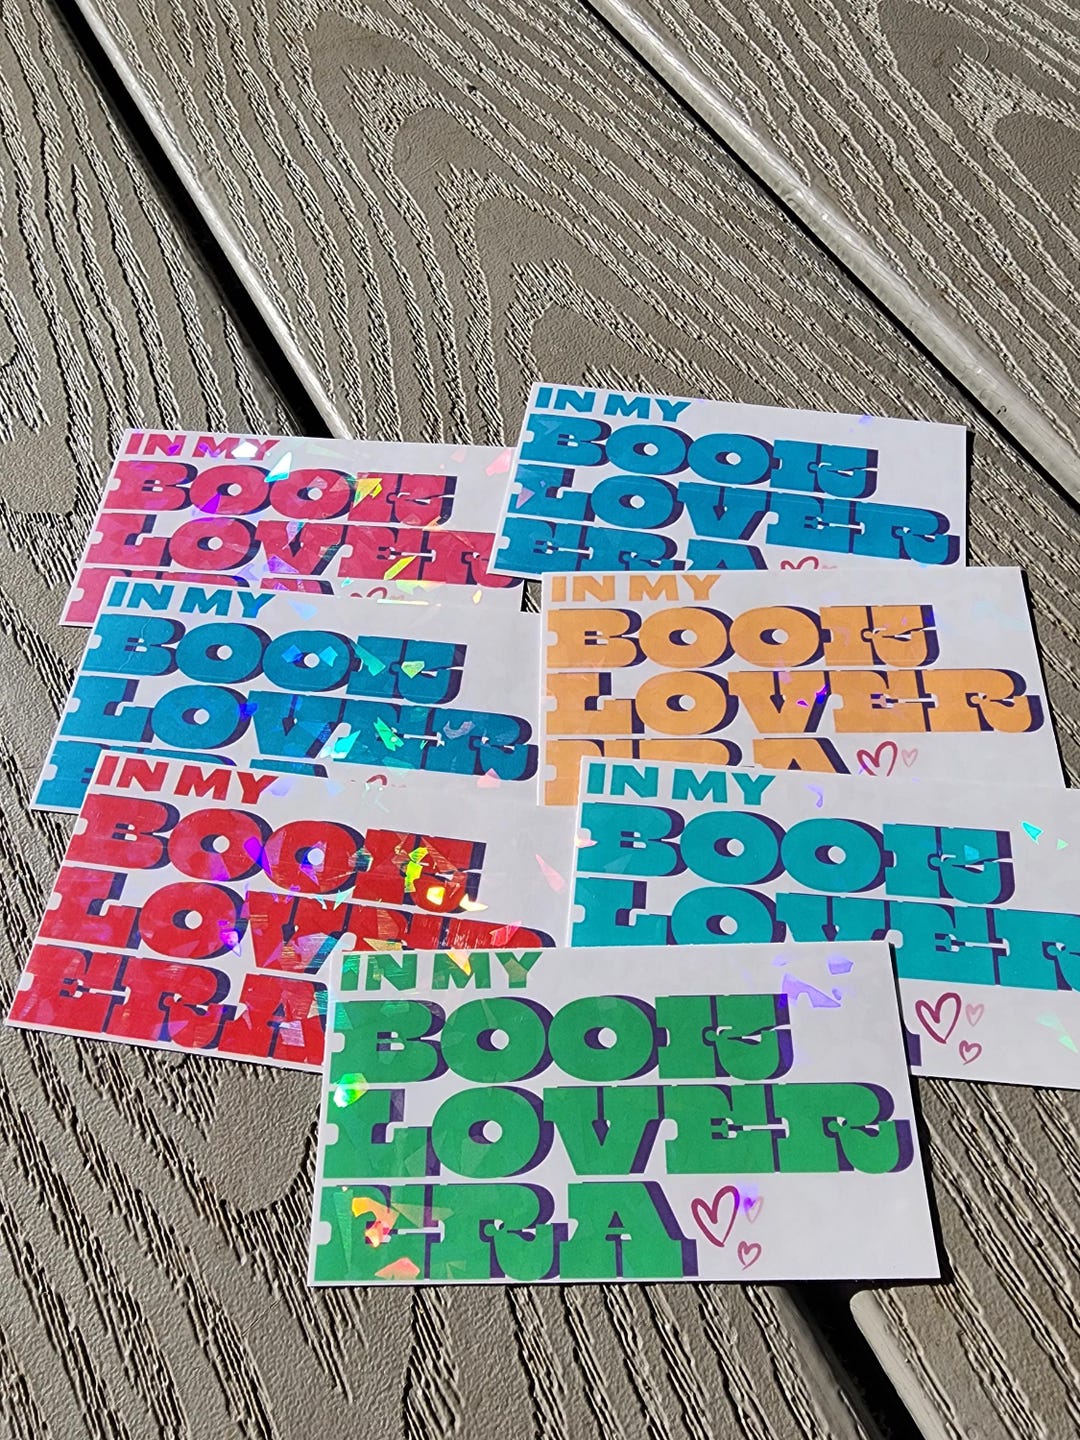 IN MY
BOOK
LOVER
ERA
IN MY
BOOK
LOVER
ERA
IN MY
BOOK
LOVER
ERA
IN MY
BOOK
LOVER
ERA
IN MY
BOOK
LOVER
ERA
IN MY
BOOK
LOVER
IN MY
BOOK
LOVER
ERA